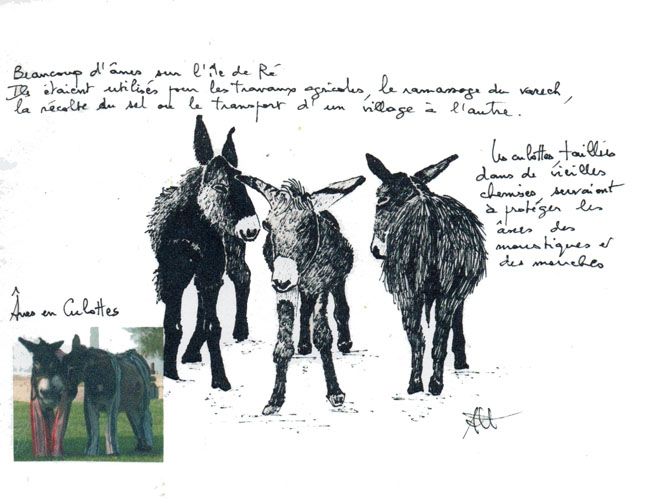 Beaucoup d'ânes sur l'île de Ré
Ils étaient utilisés pour les travaux agricoles, le ramassage du varech,
la récolte du sel ou le transport d'un village à l'autre.
Les culottes, taillées
dans de vieilles
chemises servaient
à protéger les
ânes des
moustiques et
des mouches
Ânes en Culottes